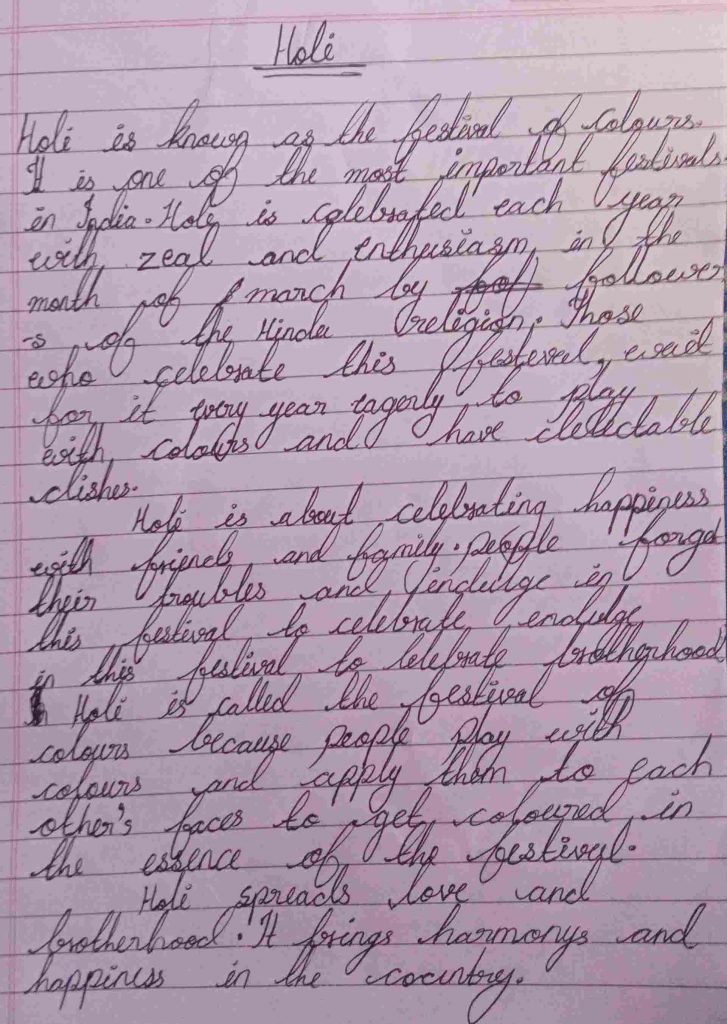 Holi
Holi is known as the festival of colours.
It is one of the most important festivals.
in India. Holi is celebrated each year
with zeal and enthusiasm in the
month of march by fol follower
-s of the Hindu religion. Those
who celebrate this festeval, wait
for it every year eagerly to play
with colours and have delectable
dishes.
Holi is about celebrating happiness
with friends and family. people forget
their troubles and indulge in
this festival to celebrate endulge
in this festival to celebrate brotherhood
Holi is called the festival of
colours because people play with
colours and apply them to each
other's faces to get coloured in
the essence of the festival.
Holi spreads love and
brotherhood. It brings harmonys and
happiness in the country.